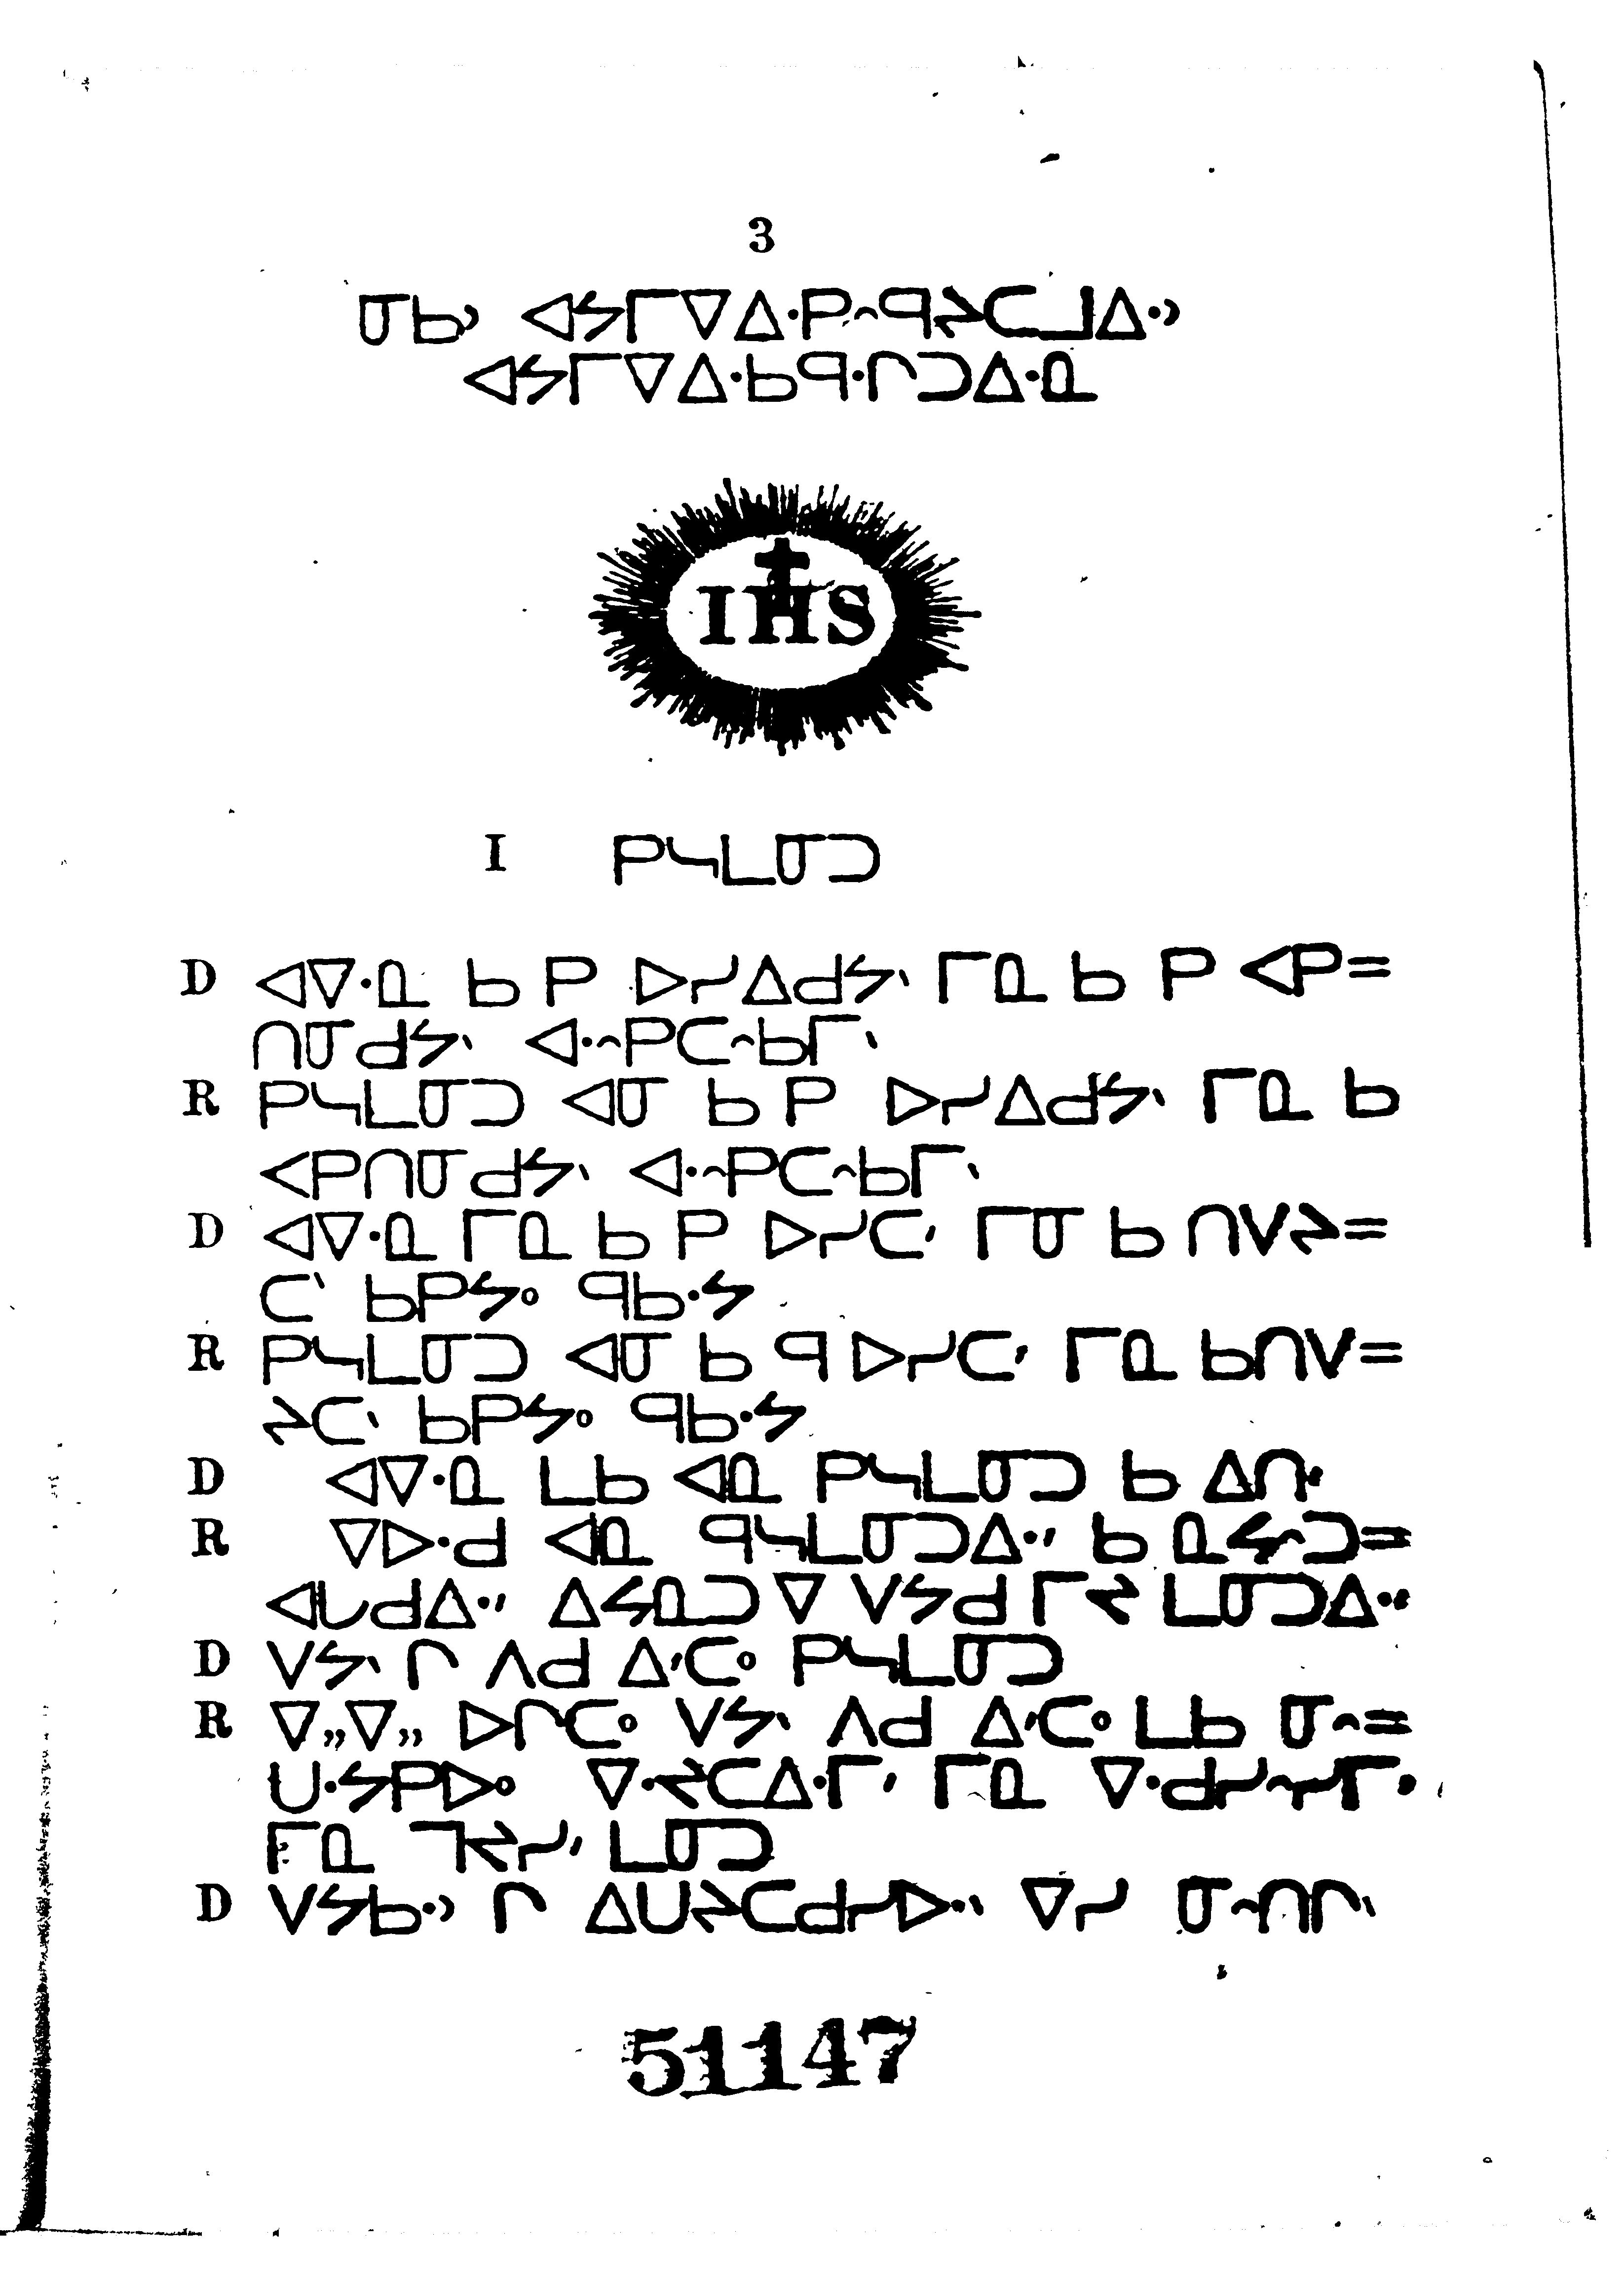 3
ᓂᑲᐣ ᐊᔭᒥᐁᐃᐧᑭᐢᑫᔨᑕᒧᐃᐧᐣ
ᐊᔭᒥᐁᐃᐧᑲᑫᐧᒋᑐᐃᐧᓇ
IHS
I ᑭᓴᒪᓂᑐ
D ᐊᐁᐧᓇ ᑲ ᑭ ᐅᓯᐃᑯᔭᐠ ᒥᓇ ᑲ ᑭ ᐸᑭ=
ᑎᓂᑯᔭᐠ ᐊᐧᐢᑭᑕᐢᑲᒥᐠ
R ᑭᓴᒪᓂᑐ ᐊᓂ ᑲ ᑭ ᐅᓯᐃᑯᔭᐠ ᒥᓇ ᑲ
ᐸᑭᑎᓂᑯᔭᐠ ᐊᐧᐢᑭᑕᐢᑲᒥᐠ
D ᐊᐁᐧᓇ ᒥᓇ ᑲ ᑭ ᐅᓯᑕᐟ ᒥᓂ ᑲ ᑎᐯᔨ=
ᑕᐠ ᑲᑭᔭᐤ ᑫᑲᐧᔭ
R ᑭᓴᒪᓂᑐ ᐊᓂ ᑲ ᑫ ᐅᓯᑕᐟ ᒥᓇ ᑲᑎᐯ=
ᔨᑕᐠ ᑲᑭᔭᐤ ᑫᑲᐧᔭ
D ᐊᐁᐧᓇ ᒪᑲ ᐊᓇ ᑭᓴᒪᓂᑐ ᑲ ᐃᑎᐟ
R ᐁᐅᐧᑯ ᐊᓇ ᑫᓴᒪᓂᑐᐃᐧᐟ ᑲ ᓇᔕᐢᑐ=
ᐊᒐᑯᐃᐧᐟ ᐃᔕᓇᑐ ᐁ ᐯᔭᑯ ᒥᔪ ᒪᓂᑐᐃᐧᐟ
D ᐯᔭᐠ ᒋ ᐱᑯ ᐃᐟᑕᐤ ᑭᓴᒪᓂᑐ
R ᐁᐦᐁᐦ ᐅᒋᑕᐤ ᐯᔭᐠ ᐱᑯ ᐃᐟᑕᐤ ᒪᑲ ᓂᐢ=
ᑌᐧᔭᑭᐅᐤ ᐁᐧᔪᑕᐃᐧᒥᐟ ᒥᓇ ᐁᐧᑯᓯᐢᓯᒥᐟ
ᒥᓇ ᒣᔪᓯᐟ ᒪᓂᑐ
D ᐯᔭᑲᐧᐣ ᒋ ᐃᑌᔨᑕᑯᓯᐅᐧᐠ ᐁᓯ ᓂᐢᑎᒋᐠ
51147